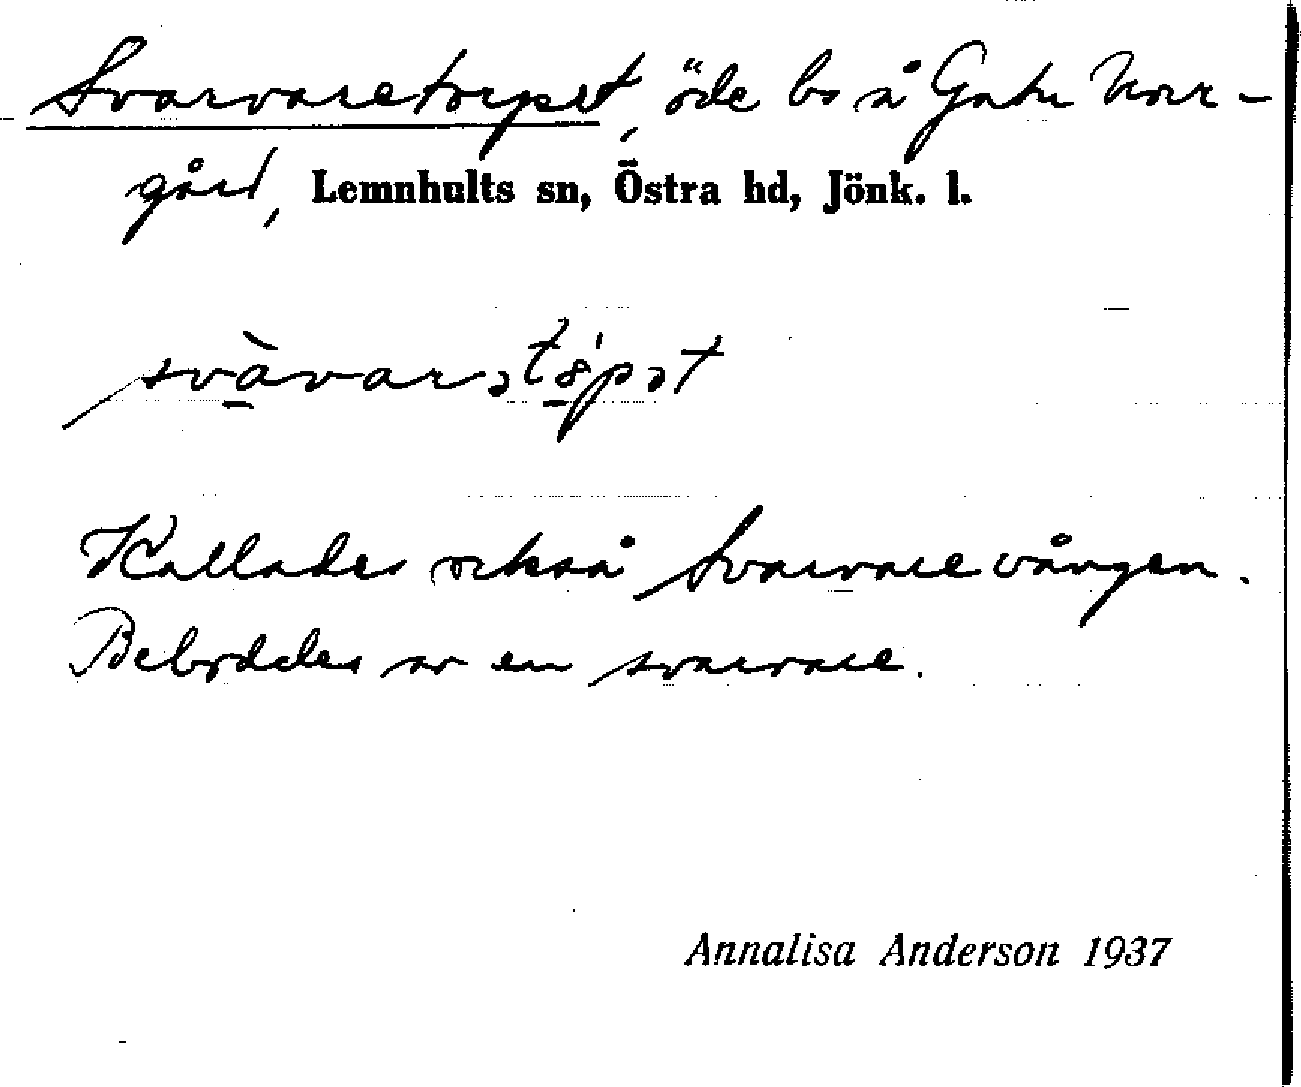 Svarvaretorpet, öde bs å Gatu Norr-
gård, Lemnhults sn, Östra hd, Jönk. l.
svàvarətö́pət
Kallades också Svarvarevången.
Bebyddes av en svarvare.
Annalisa Anderson 1937